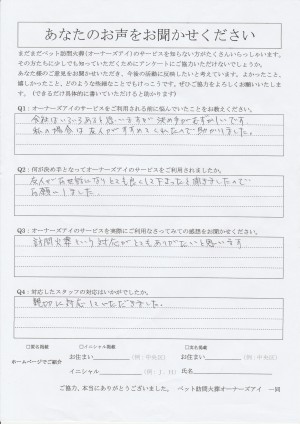 あなたのお声をお聞かせください
まだまだペット訪問火葬(オーナーズアイ)のサービスを知らない方がたくさんいらっしゃいます。
その方たちに少しでも知っていただくためにアンケートにご協力いただけないでしょうか。
あなた様のご意見をお聞かせいただき、今後の活動に反映したいと考えています。よかったこと、
嬉しかったこと、どのような些細なことでもけっこうです。ぜひご協力をよろしくお願いいたしま
す。(できるだけ具体的に書いていただけると助かります)
Q1:オーナーズアイのサービスをご利用される前に悩んでいたことをお教えください。
会社はいろいろあると思いますが 決め手がむずかしいです
私の場合は友人がすすめてくれたので助かりました。
Q2:何が決め手となってオーナーズアイのサービスをご利用されましたか。
友人がお世話になりとても良くして下さったと聞きましたので
お願いしました。
Q3:オーナーズアイのサービスを実際にご利用なさってみての感想をお聞かせください。
訪問火葬という対応がとてもありがたいと思います
Q4:対応したスタッフの対応はいかがでしたか。
親切に対応していただきました。
□匿名掲載 □イニシャル掲載 □実名掲載
ホームページでご紹介 お住まい (例:中央区) お住まい (例:中央区)
イニシャル (例:J.H) 氏名
ご協力、本当にありがとうございました。 ペット訪問火葬オーナーズアイ 一同